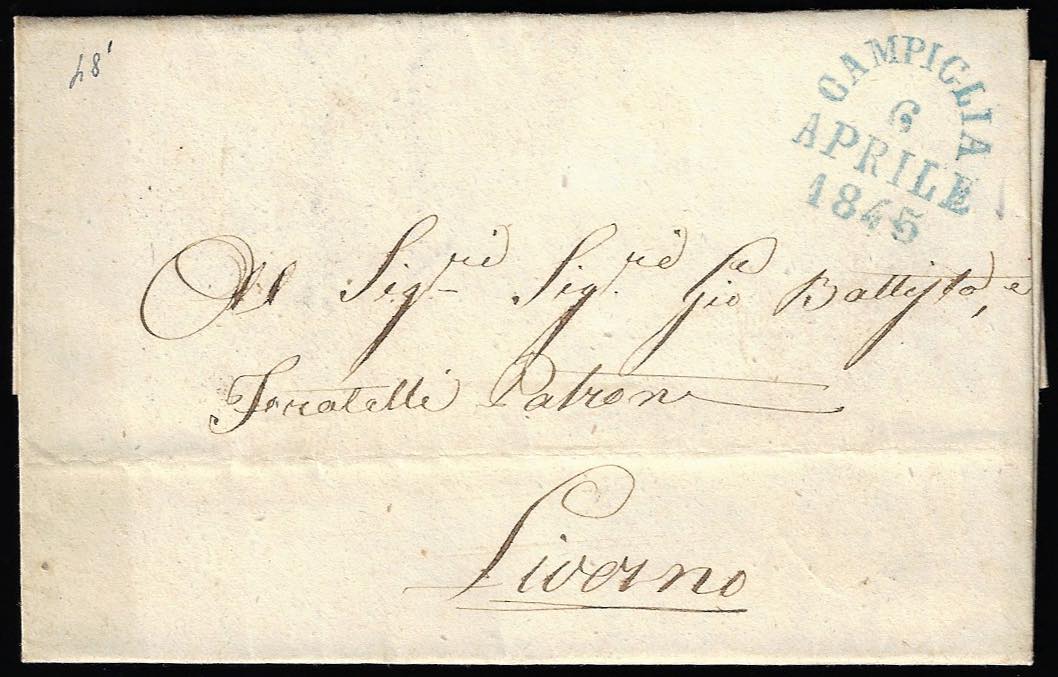 48'
CAMPIGLIA
6
APRILE
1845
Al Sig.ri Sig.ri Gio Battista, e
Fratelli Patron
Livorno